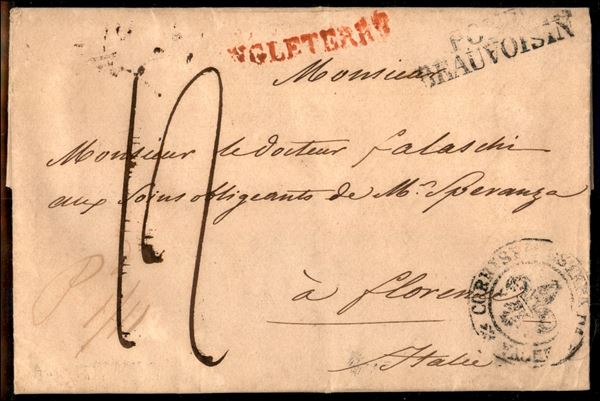 ANGLETERRE
PONT
BEAUVOISIN
Monsieur
Monsieur le docteur Falaschi
aux Soins obligeants de Mr. Speranza
à Florence
Italie
CORRISP